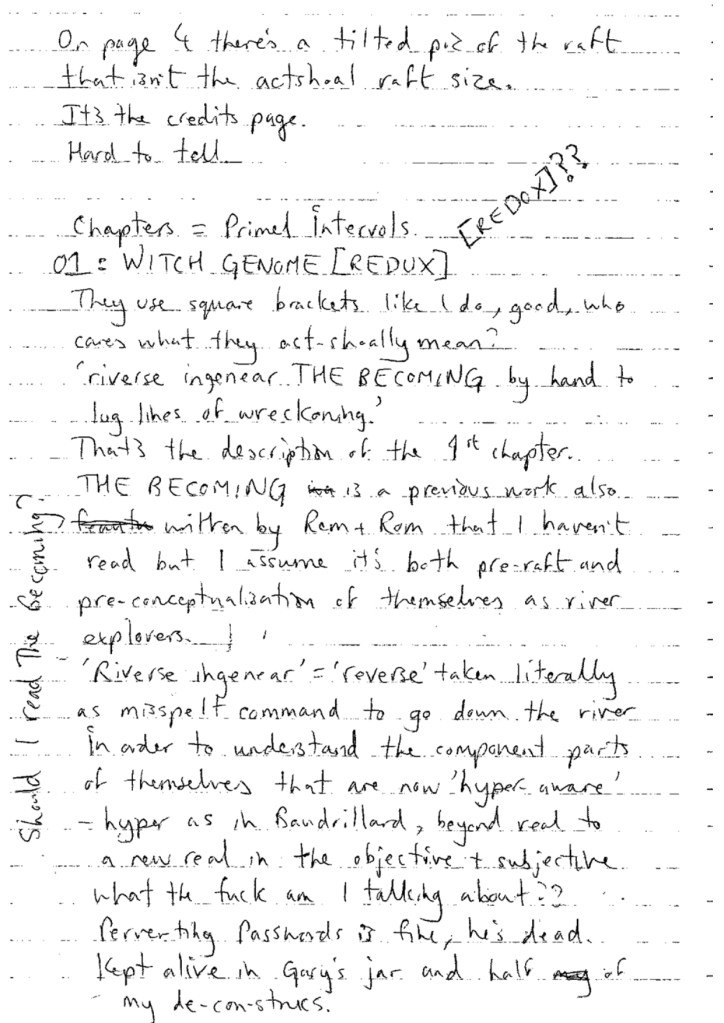 On page 4 there's a tilted pic of the raft
that isn't the actshoal raft size.
It's the credits page.
Hard to tell
[REDOX]??
Chapters = Primel Intervols.
01: WITCH GENOME [REDUX]
They use square brackets like I do, good, who
cares what they act-shoally mean?
'riverse ingenear THE BECOMING by hand to
lug lines of wreckoning.'
That's the description of the 1st chapter.
THE BECOMING is a previous work also
written by Rem + Rom that I haven't
read but I assume it's both pre-raft and
pre-conceptualization of themselves as river
explorers.
'Riverse ingenear' = 'reverse' taken literally
as misspelt command to go down the river
in order to understand the component parts
of themselves that are now 'hyper-aware'
- hyper as in Baudrillard, beyond real to
a new real in the objective + subjective
what the fuck am I talking about??
Perverting Passwords is fine, he's dead.
Kept alive in Gary's jar and half of
my de-con-strucs.
Should I read The Becoming?